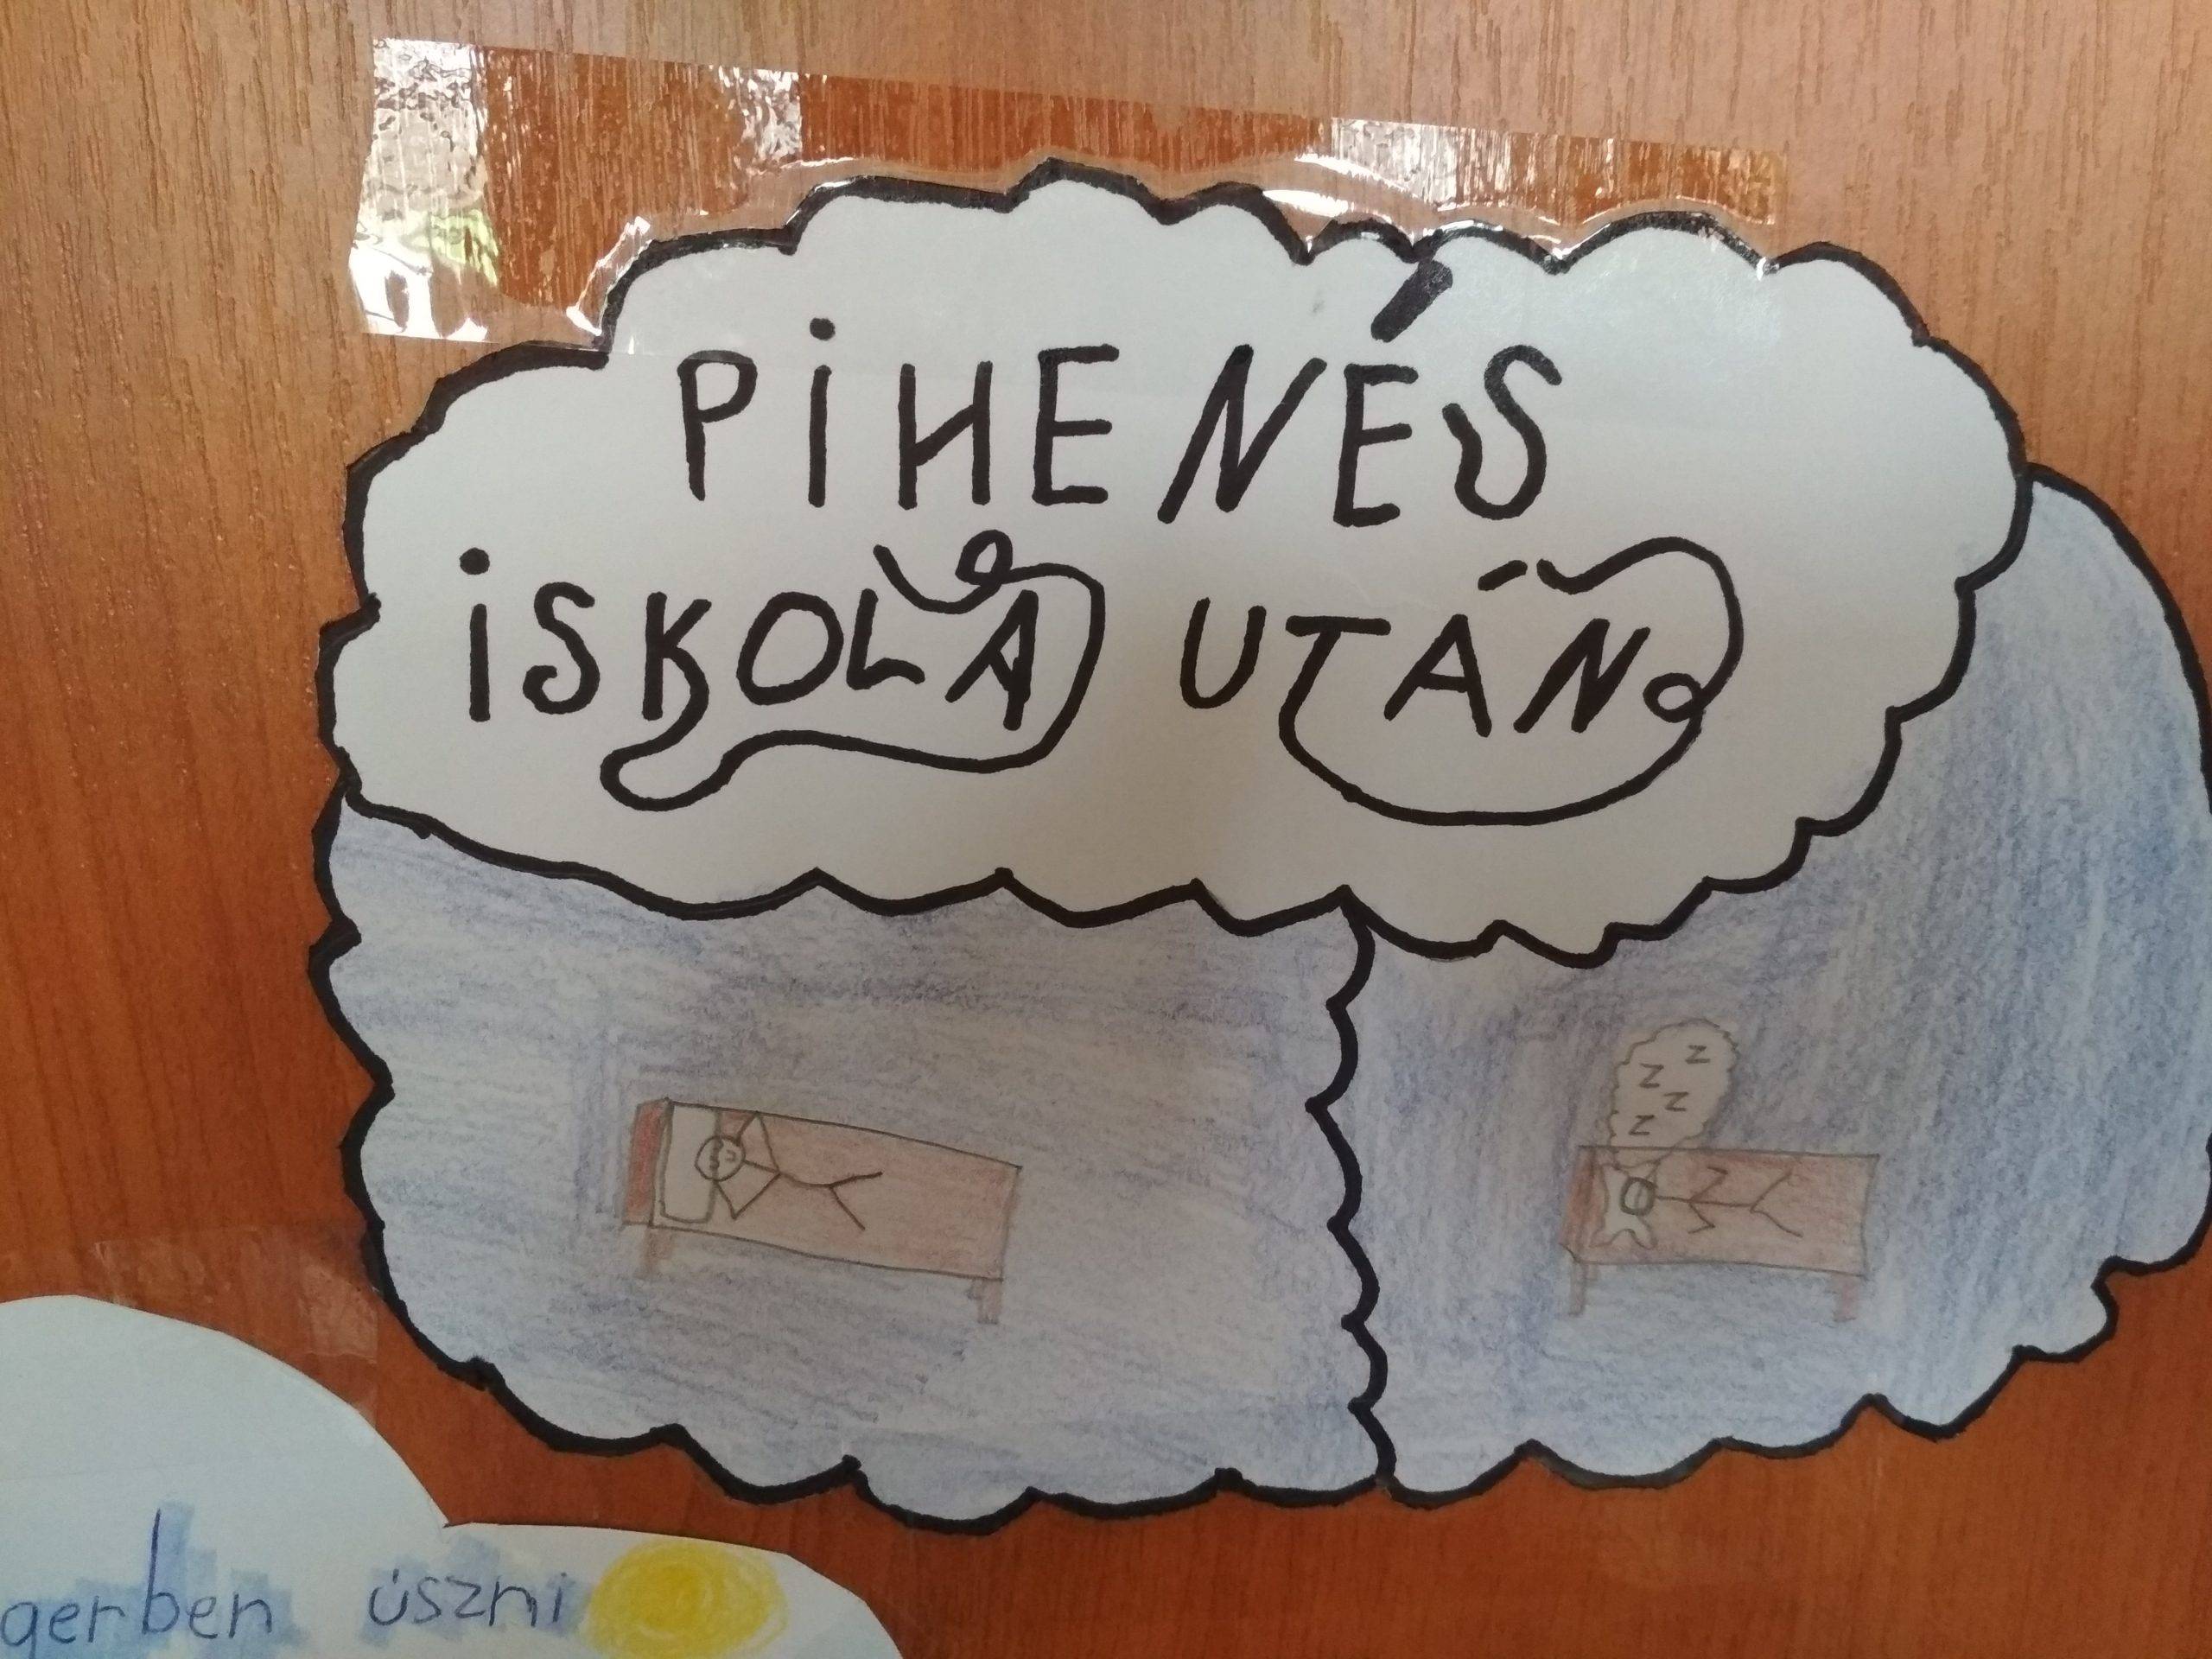 PiHENÉS
iSKOLA UTÁN
z
z
z
z
gerben úszni